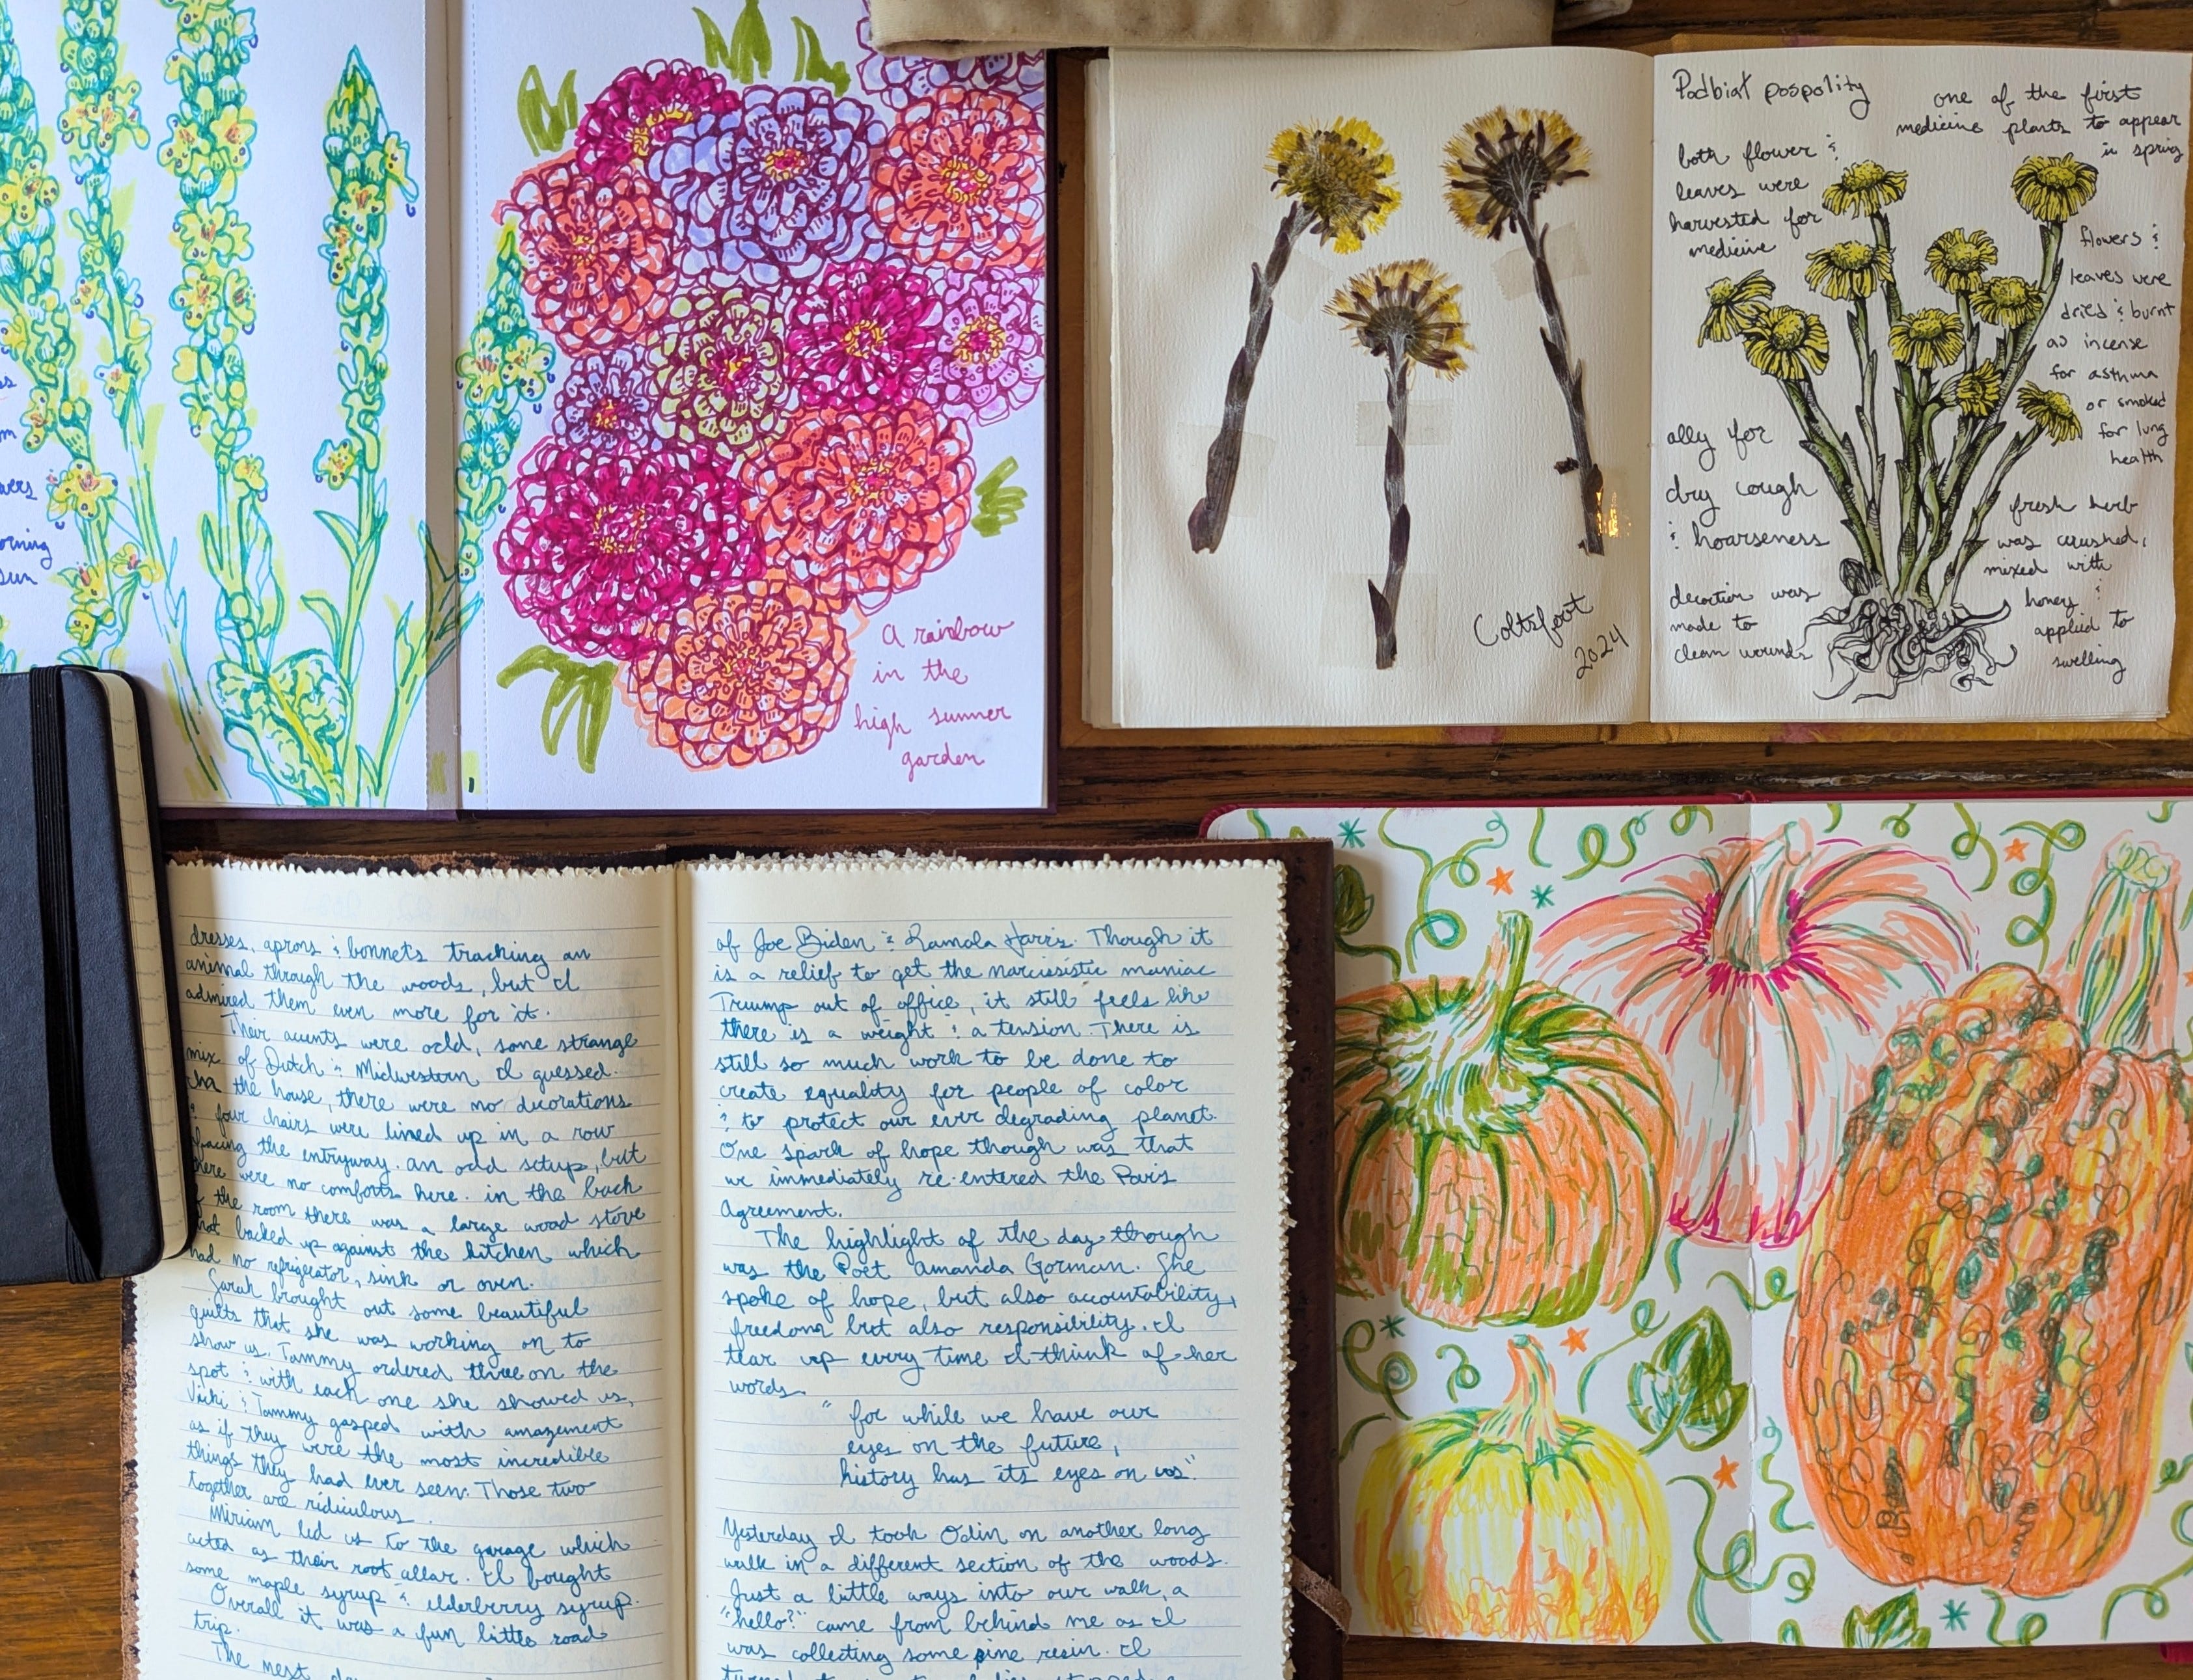 ning
sun
A rainbow
in the
high summer
garden
Coltsfoot
2024
Podbiał pospolity
one of the first
medicine plants to appear
in spring
both flower &
leaves were
harvested for
medicine
flowers &
leaves were
dried & burnt
as incense
for asthma
or smoked
for lung
health
ally for
dry cough
& hoarseness
decoction was
made to
clean wounds
fresh herb
was crushed,
mixed with
honey &
applied to
swelling
dresses, aprons & bonnets tracking an
animal through the woods, but I
admired them even more for it.
Their accents were odd, some strange
mix of Dutch & Midwestern I guessed.
the house, there were no decorations
& four chairs were lined up in a row
facing the entryway. An odd setup, but
there were no comforts here. in the back
of the room there was a large wood stove
that backed up against the kitchen which
had no refrigerator, sink or oven.
Sarah brought out some beautiful
quilts that she was working on to
show us. Tammy ordered three on the
spot & with each one she showed us,
Vicki & Tammy gasped with amazement
as if they were the most incredible
things they had ever seen. Those two
together are ridiculous.
Miriam led us to the garage which
acted as their root cellar. I bought
some maple syrup & elderberry syrup.
Overall it was a fun little road
trip.
The next
of Joe Biden & Kamala Harris. Though it
is a relief to get the narcissistic maniac
Trump out of office, it still feels like
there is a weight & a tension. There is
still so much work to be done to
create equality for people of color
& to protect our ever degrading planet.
One spark of hope though was that
we immediately re-entered the Paris
Agreement.
The highlight of the day though
was the Poet Amanda Gorman. She
spoke of hope, but also accountability,
freedom but also responsibility. I
tear up every time I think of her
words.
"for while we have our
eyes on the future,
history has its eyes on us".
Yesterday I took Odin on another long
walk in a different section of the woods.
Just a little ways into our walk, a
"hello?" came from behind me as I
was collecting some pine resin. I